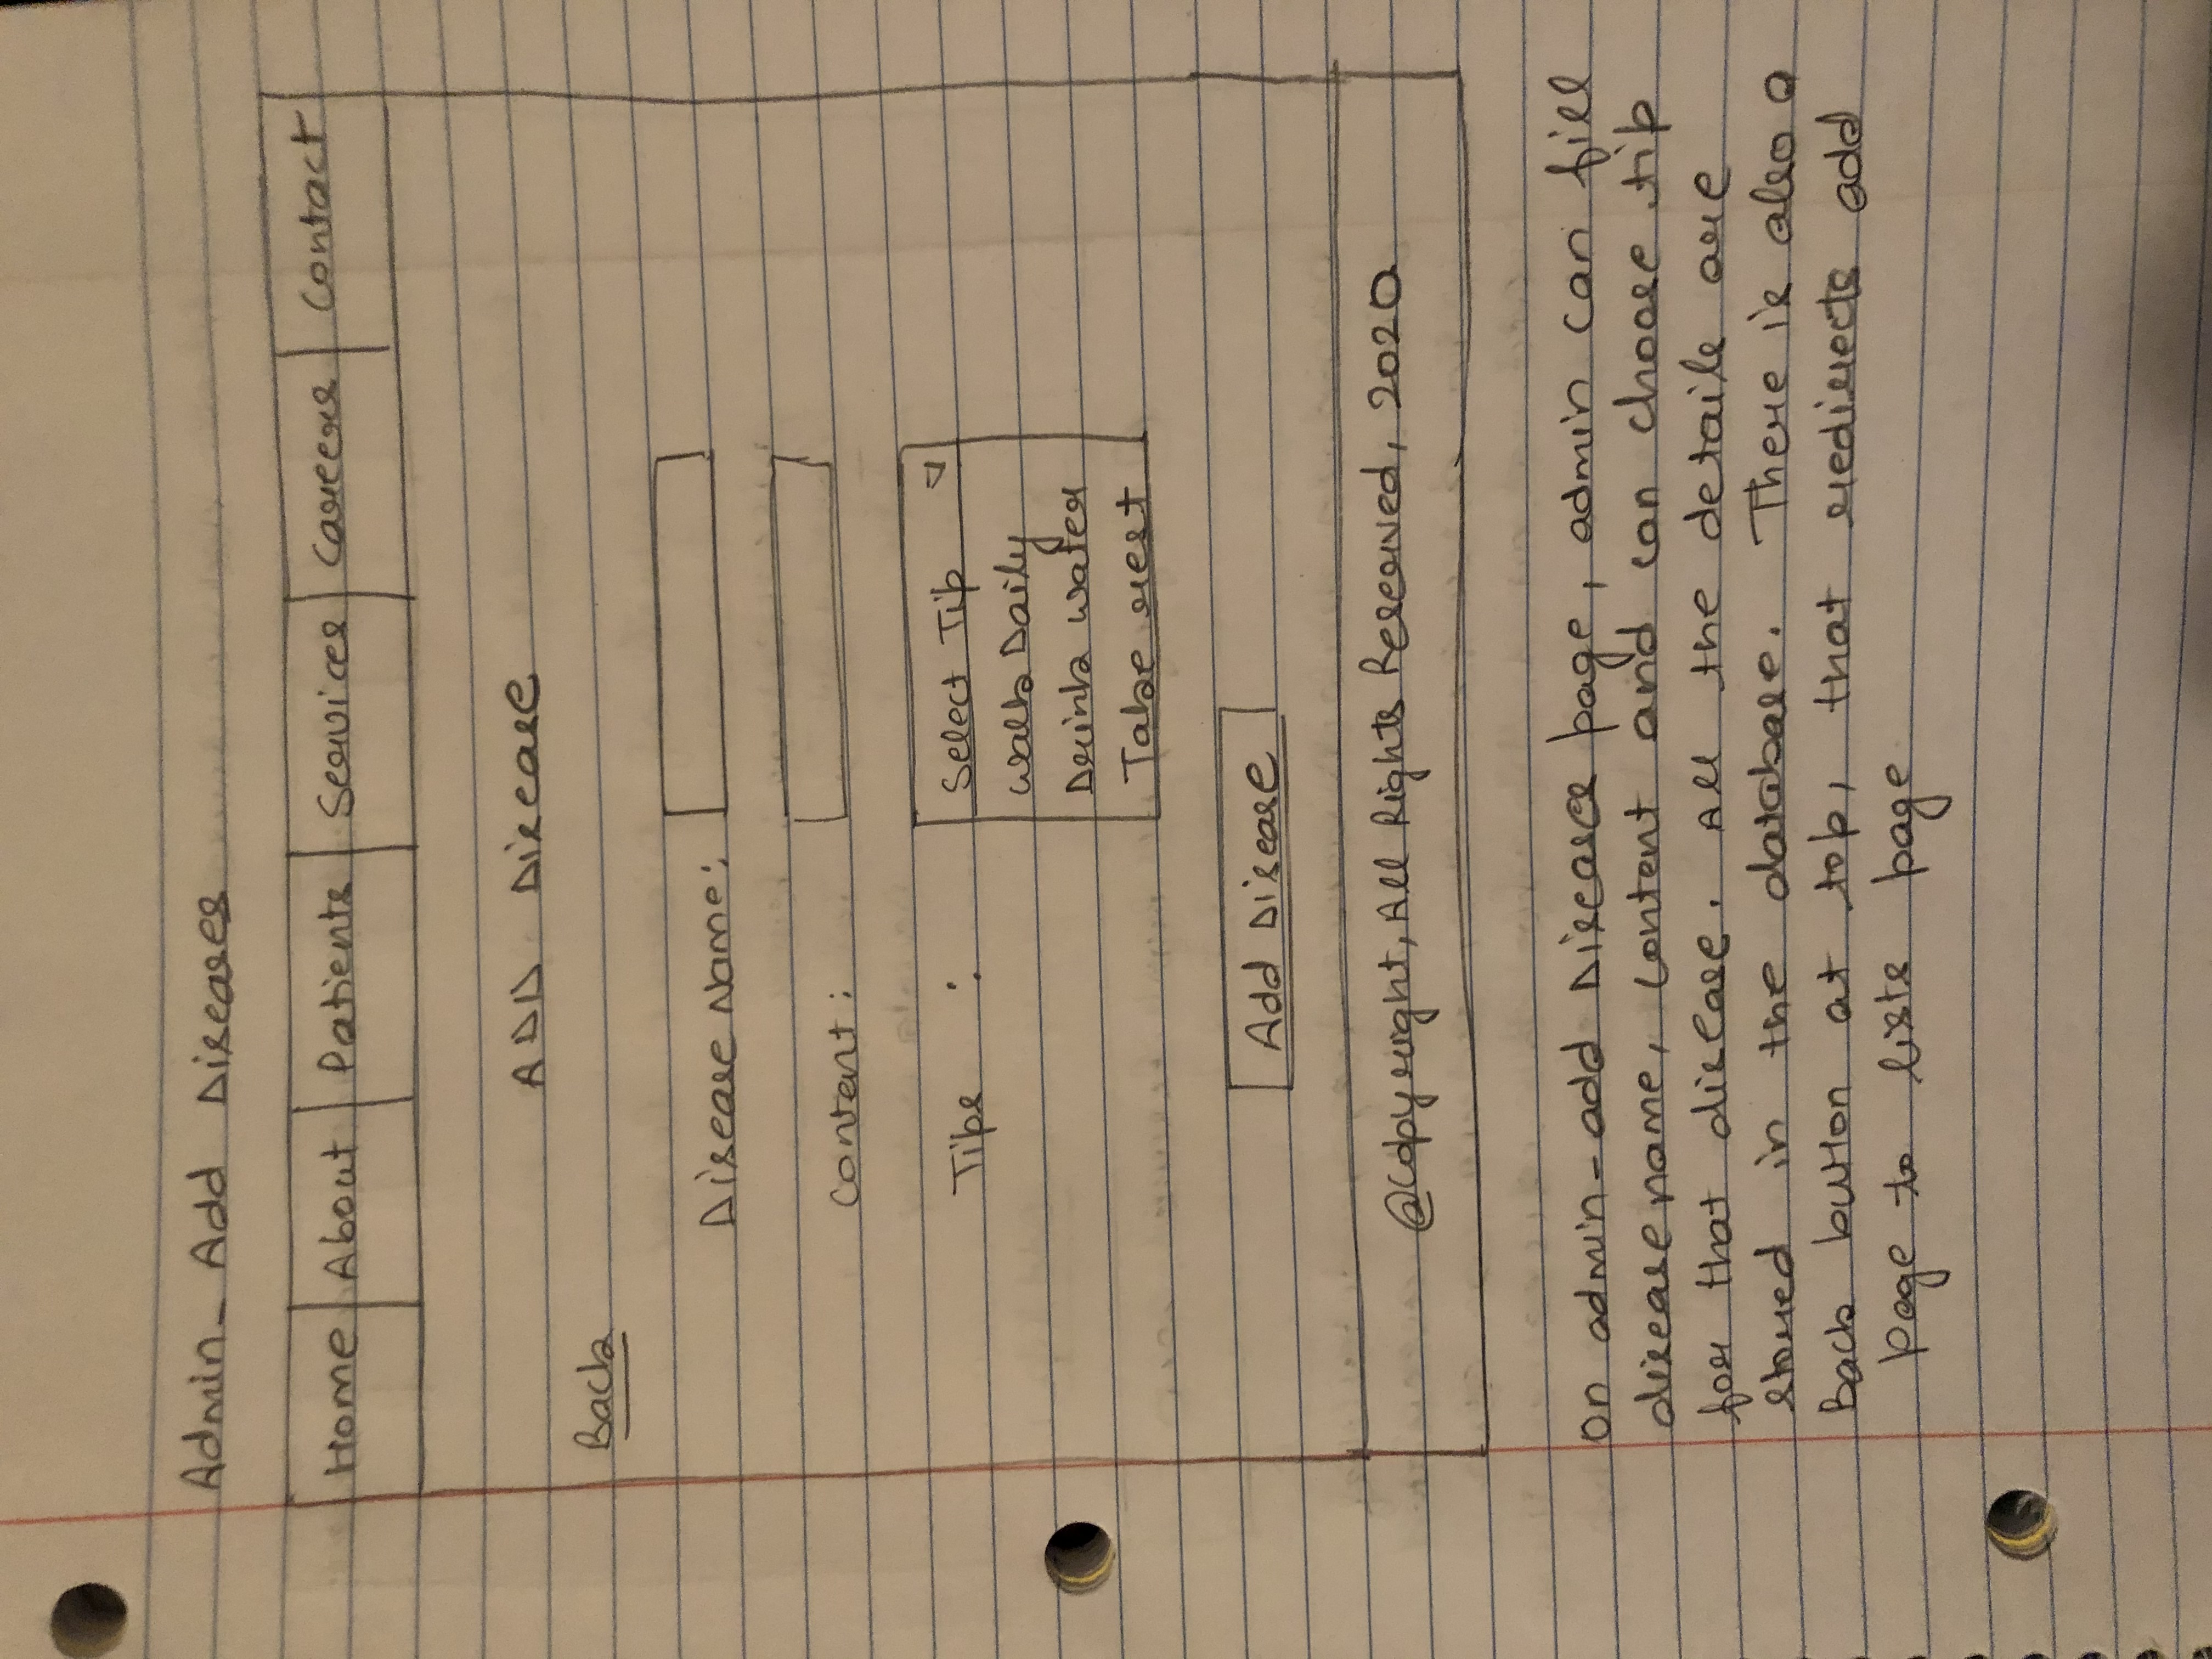 Admin- Add Diseases
Home About Patients Services Careers Contact
ADD Disease
Back
Disease Name:
Content:
Tips : Select Tip
Walk Daily
Drink Water
Take rest
Add Disease
@Copyright, All Rights Reserved, 2020
On admin-add Diseases page, admin can fill
disease name, content and can choose tip
for that disease. All the details are
stored in the database. There is also a
Back button at top, that redirects add
page to lists page